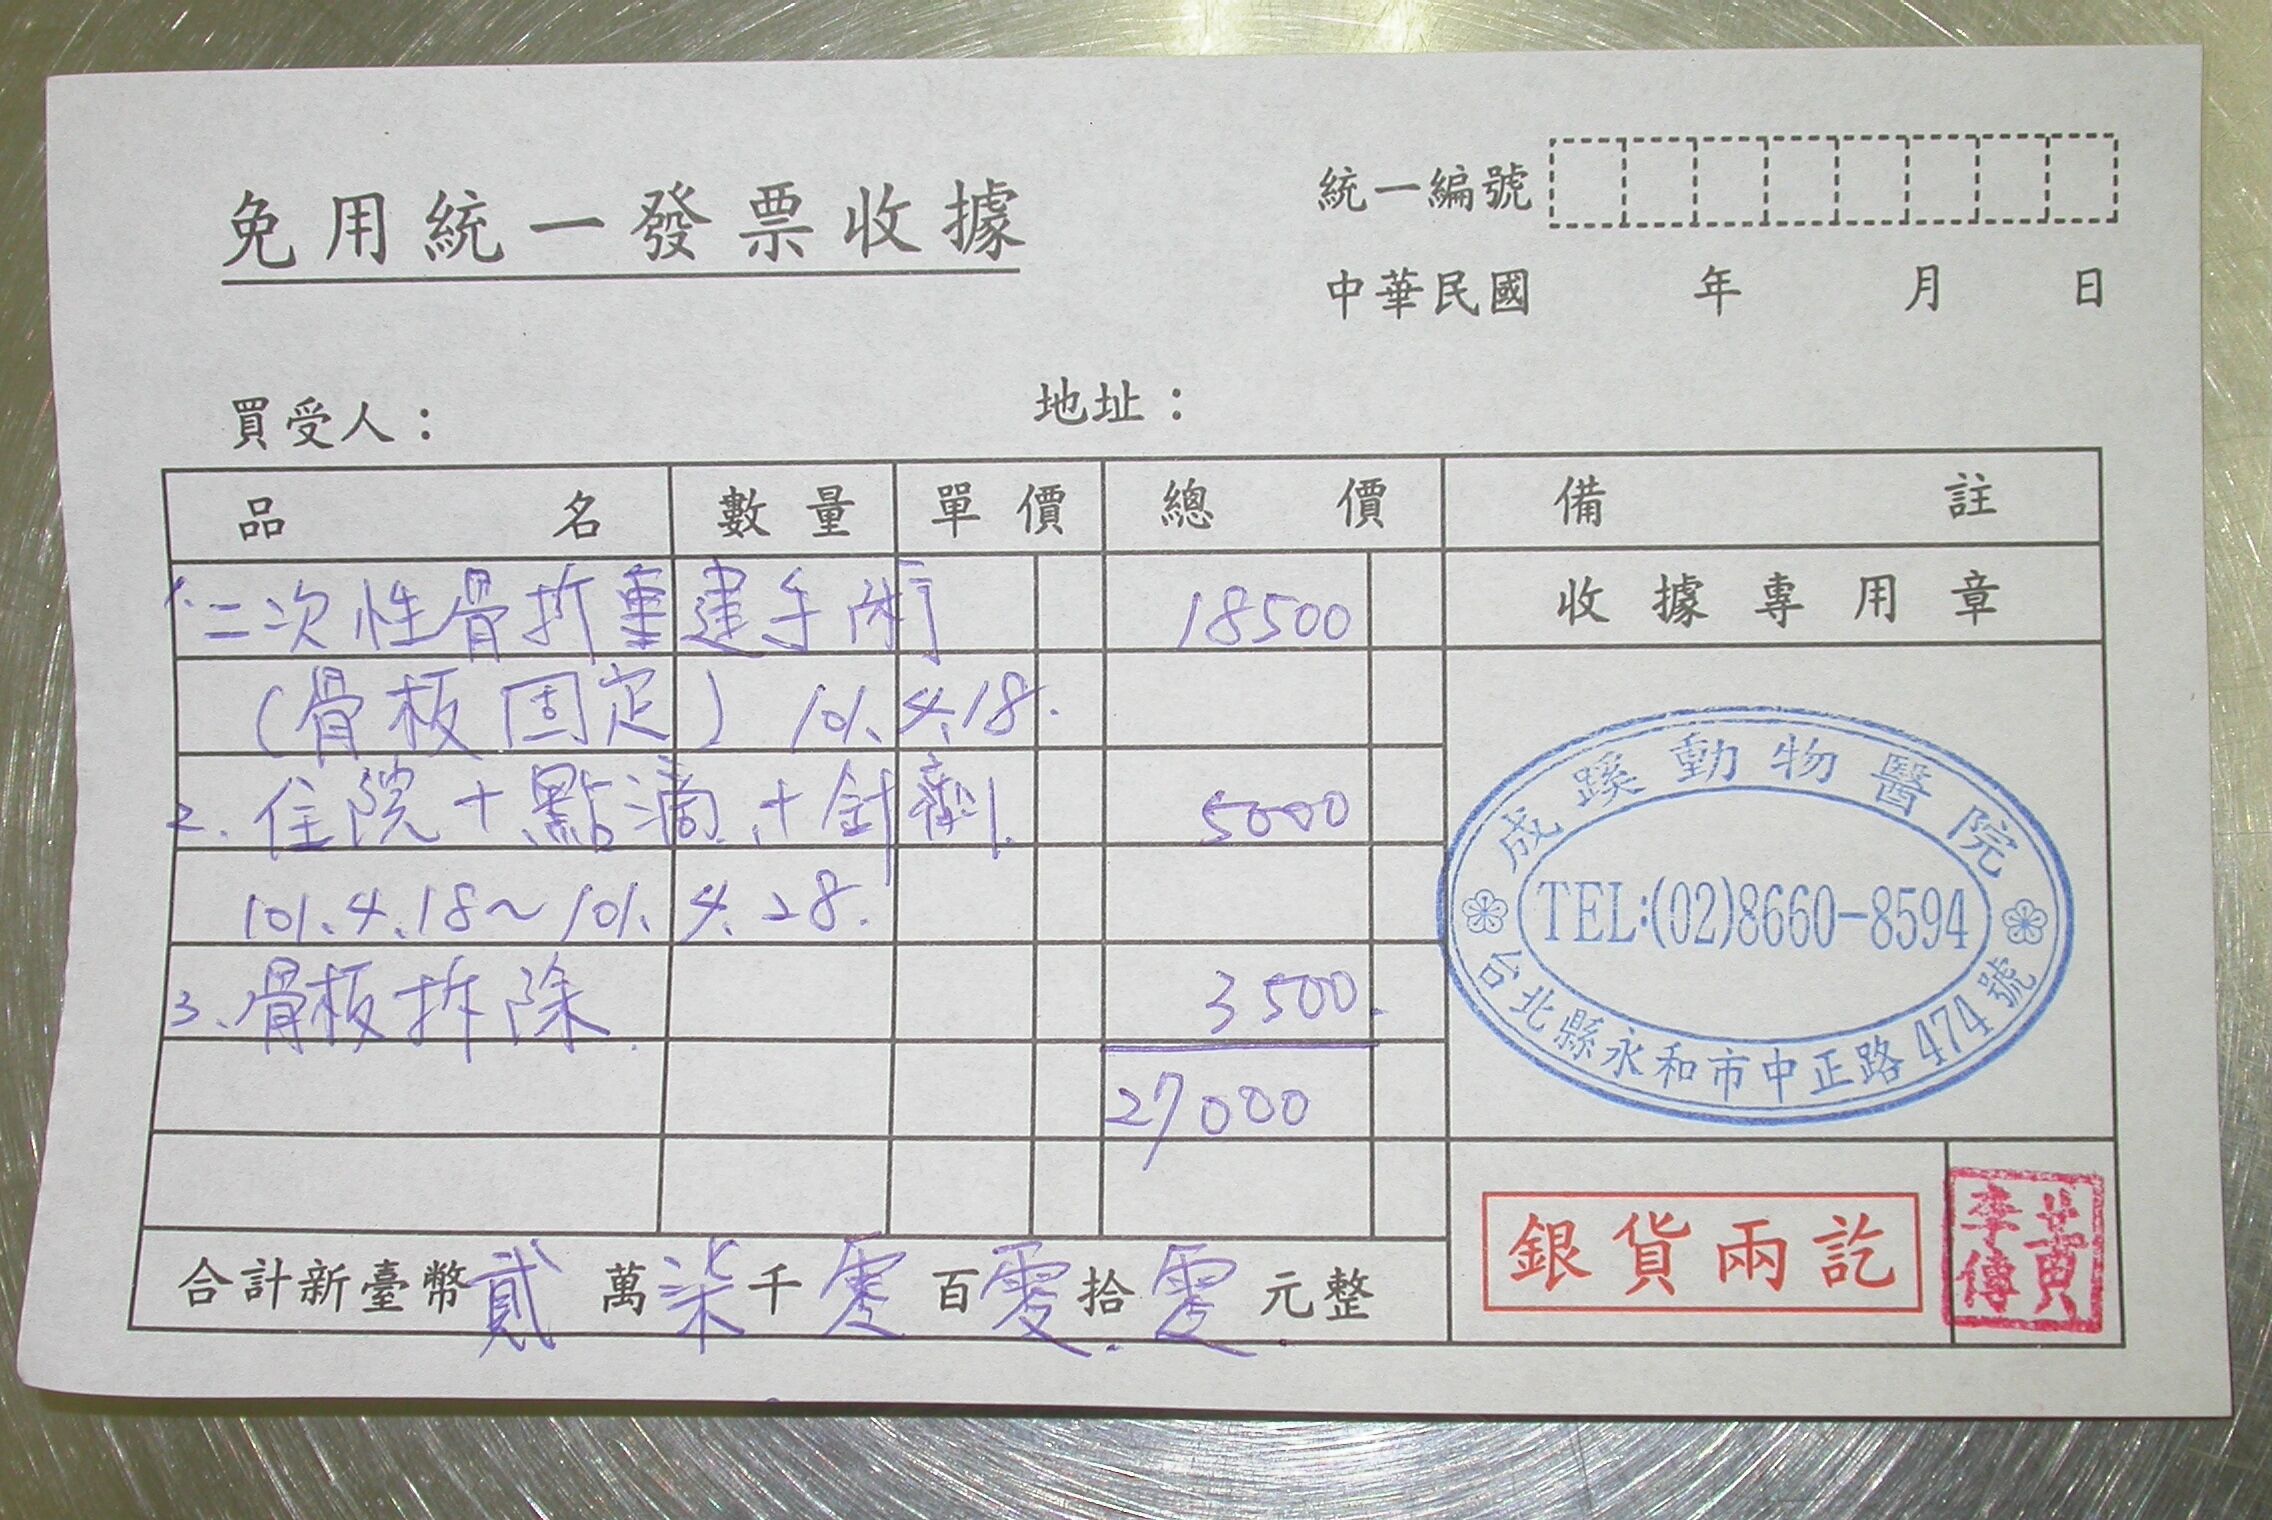 免用統一發票收據
統一編號
中華民國 年 月 日
買受人：
地址：
品名 數量 單價 總價 備註
1.二次性骨折重建手術 18500
收據專用章
(骨板固定) 101.4.18.
2.住院+點滴+針劑. 5000
101.4.18~101.4.28.
3.骨板拆除. 3500.
27000
成蹊動物醫院
TEL:(02)8660-8594
台北縣永和市中正路474號
合計新臺幣貳萬柒千零百零拾零元整
銀貨兩訖
黃李傳